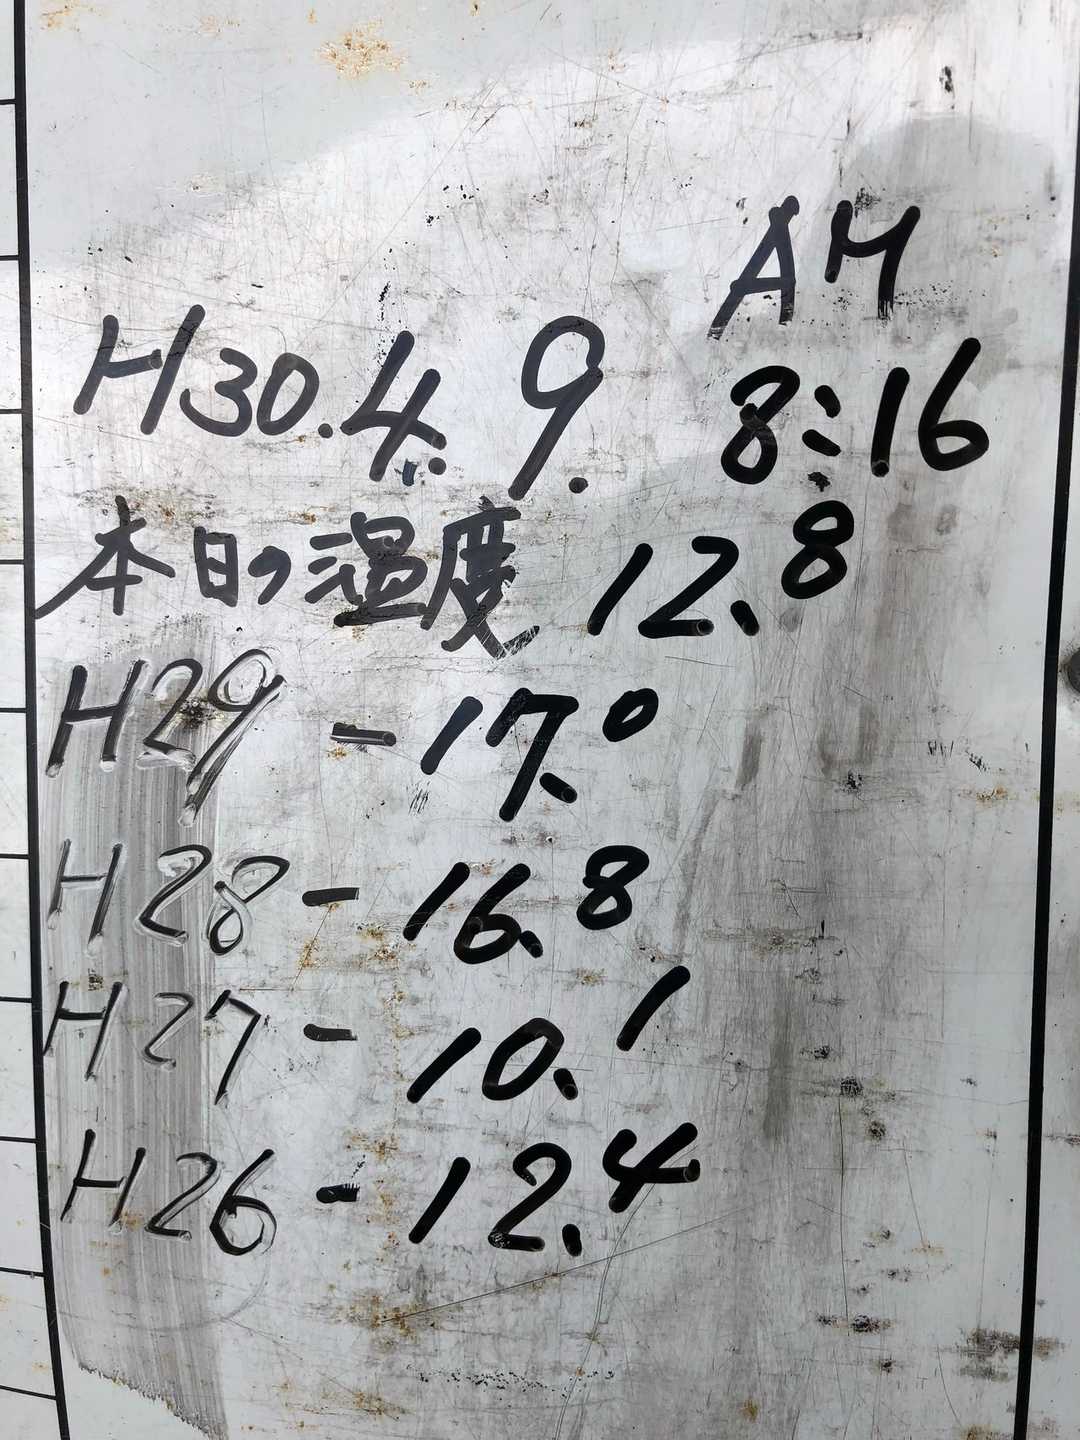 AM
H30.4.9. 8:16
本日の温度 12.8
H29 - 17.0
H28 - 16.8
H27 - 10.1
H26 - 12.4